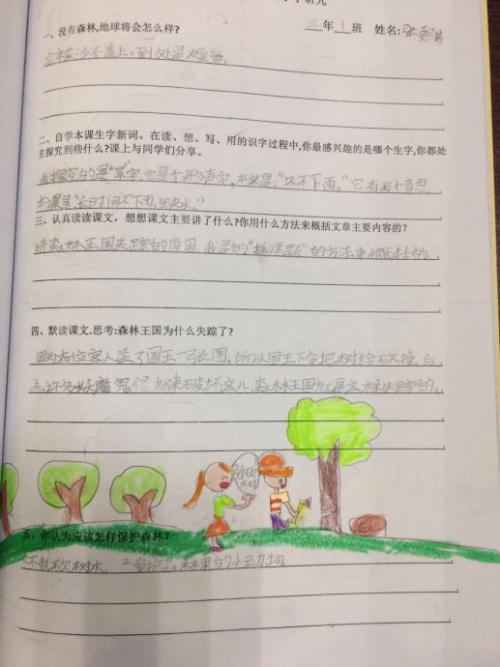 三年1班 姓名:张
一、没有森林,地球将会怎么样?
会被沙子盖上,到处是
二、自学本课生字新词。在读、想、写、用的识字过程中,你最感兴趣的是哪个生字,你都处
主探究到些什么?课上与同学们分享。
我探究的是“旱”字,也是个形声字,本义是:“久不下雨。”它有两个意思
本课是“长时间不下雨,缺水。”
三、认真读读课文,想想课文主要讲了什么?你用什么方法来概括文章主要内容的?
森林王国失踪的原因 我是的“题”的方法来概括的。
四、默读课文,思考:森林王国为什么失踪了?
因为有位人送了国王一张图,所以国王下令把树全砍掉,后
来,魔鬼们来破坏这儿,森林王国就是这样失踪的。
五、你认为应该怎样保护森林?
不乱砍树木。 森林里的小动物